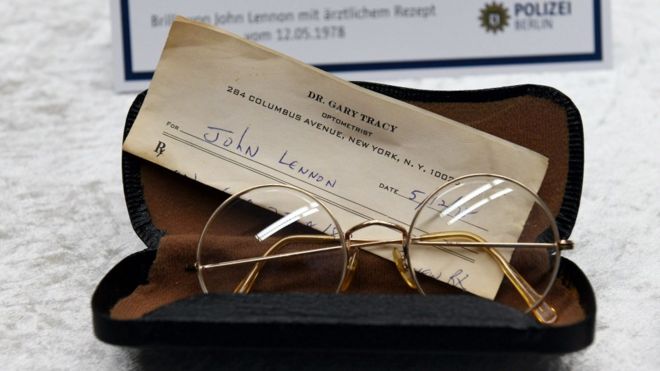 Brille von John Lennon mit ärztlichem Rezept
vom 12.05.1978
POLIZEI
BERLIN
DR. GARY TRACY
OPTOMETRIST
284 COLUMBUS AVENUE, NEW YORK, N. Y.
FOR John Lennon
DATE
℞